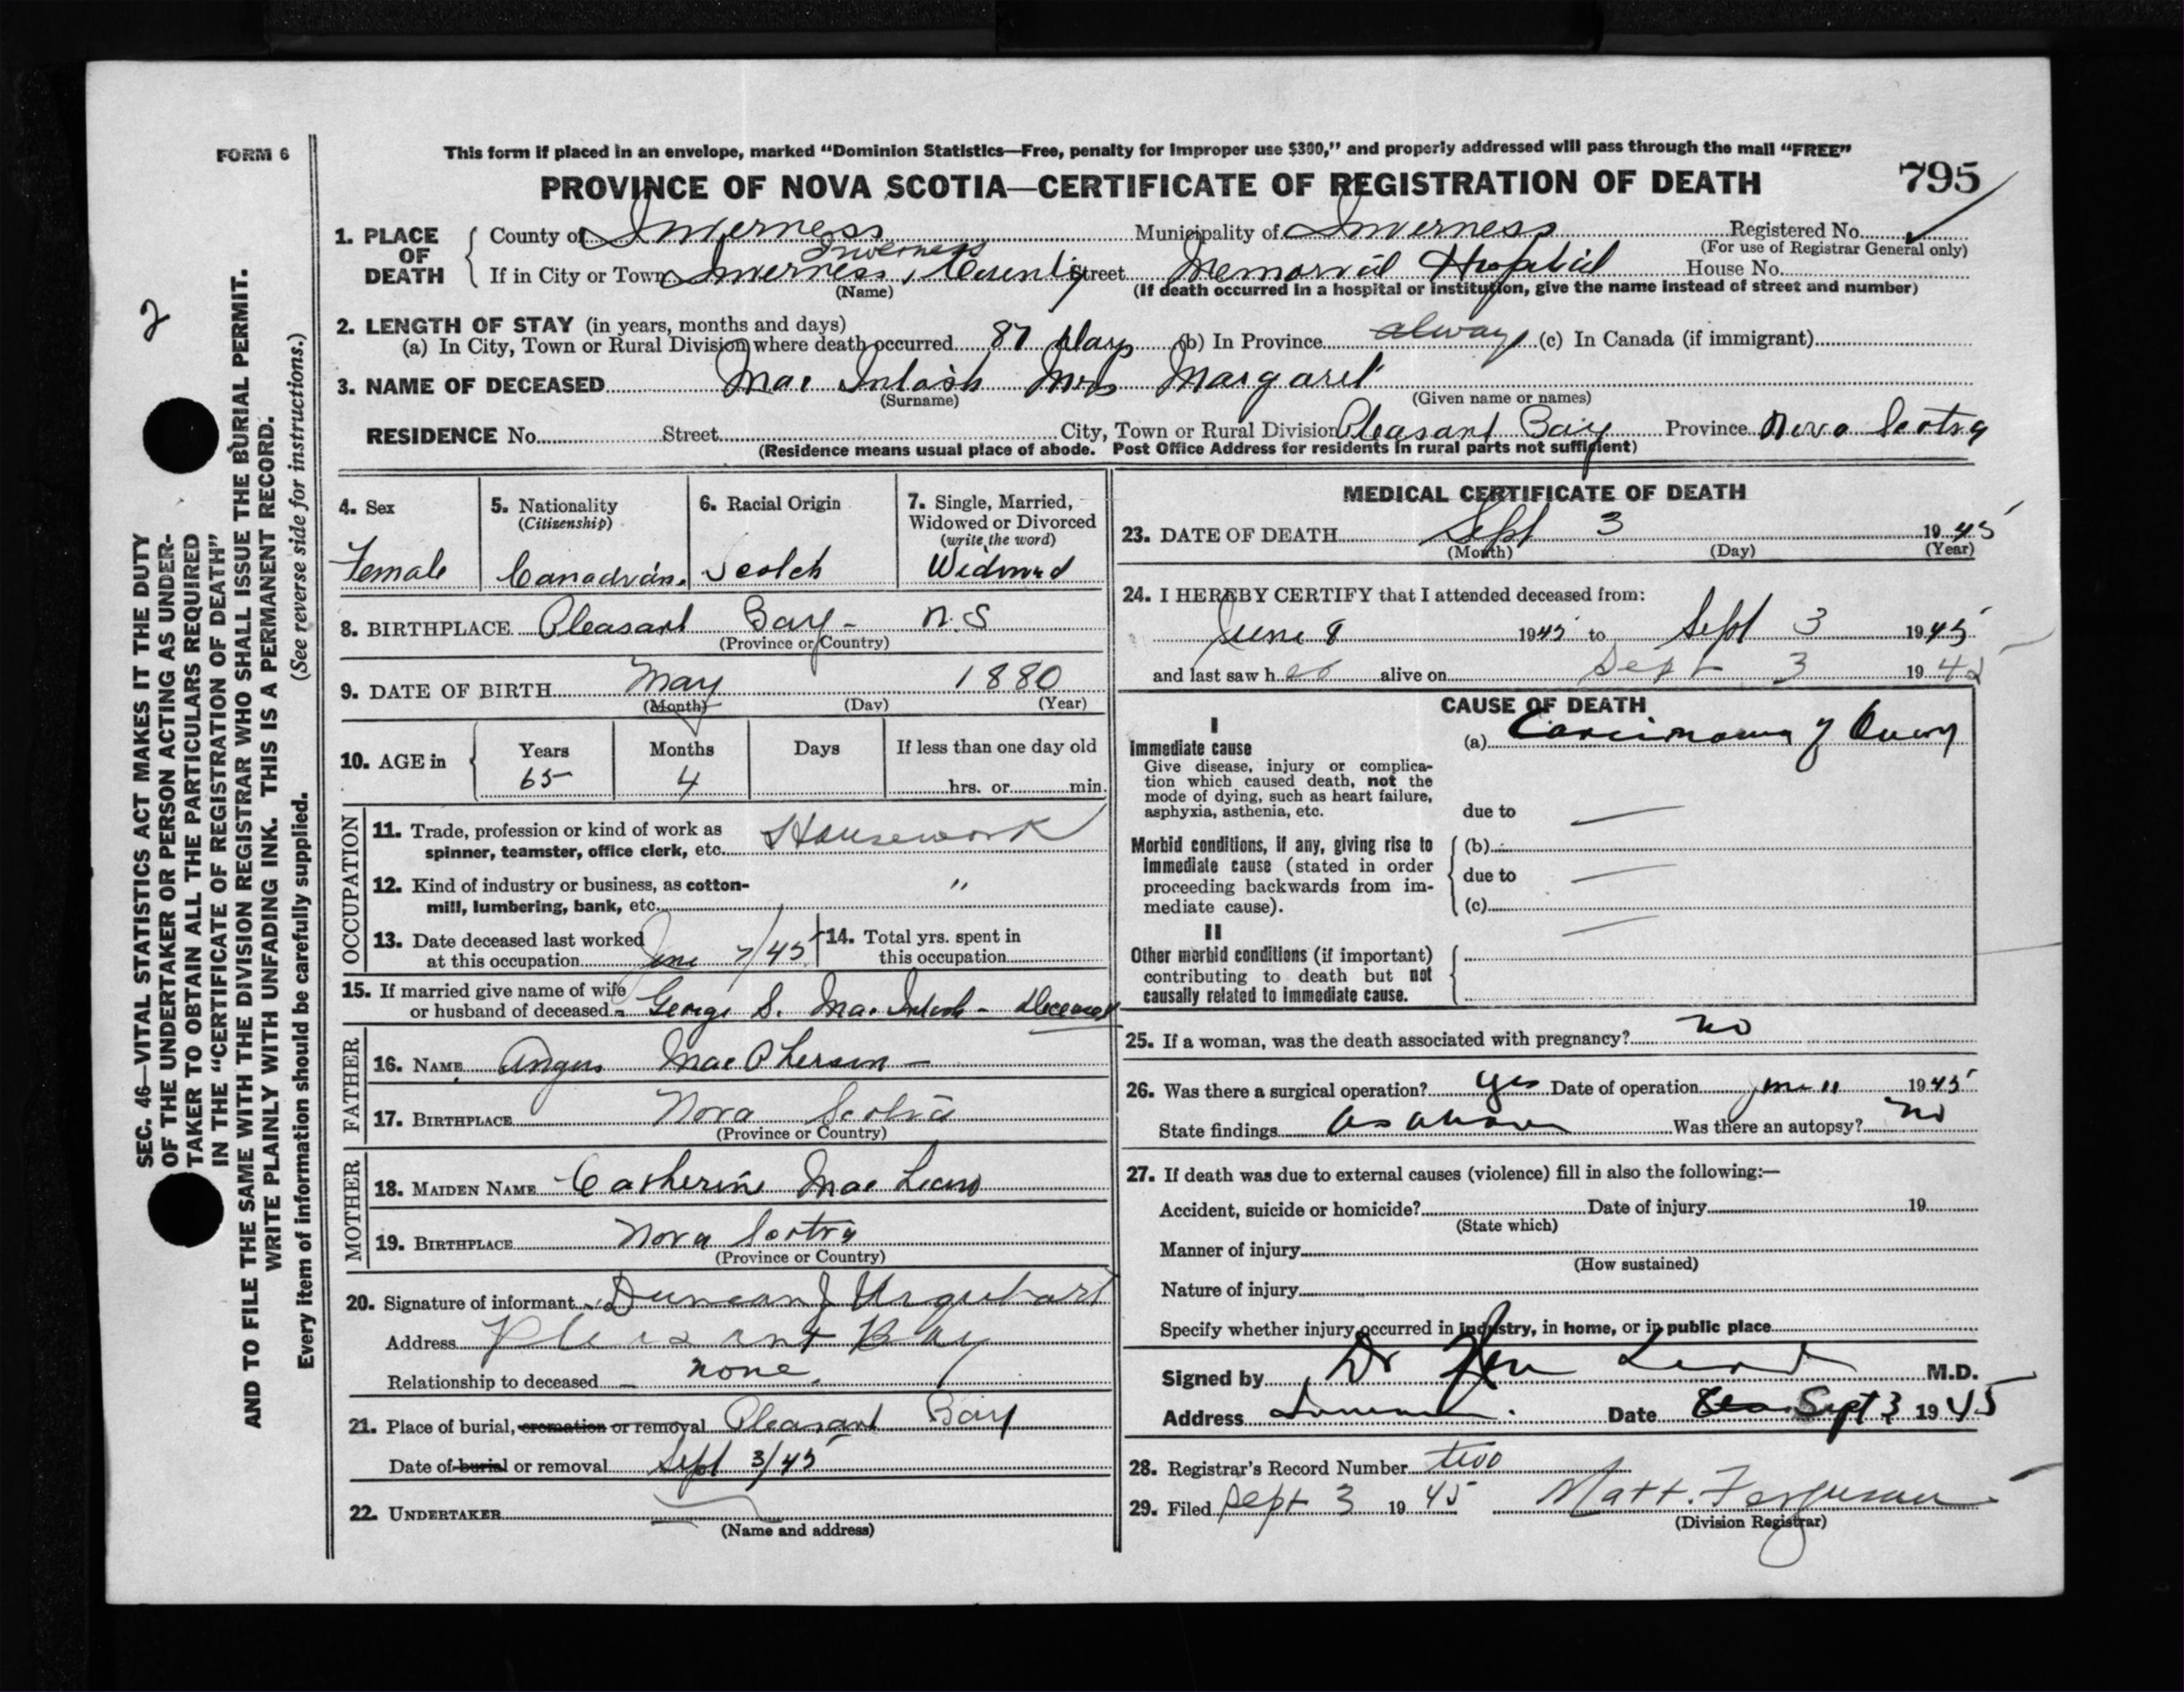 FORM 6
This form if placed in an envelope, marked "Dominion Statistics—Free, penalty for improper use $300," and properly addressed will pass through the mail "FREE"
PROVINCE OF NOVA SCOTIA—CERTIFICATE OF REGISTRATION OF DEATH
795
1. PLACE OF DEATH
County of Inverness Municipality of Inverness Registered No.
(For use of Registrar General only)
Inverness
If in City or Town Inverness, County Street Memorial Hospital House No.
(Name) (If death occurred in a hospital or institution, give the name instead of street and number)
2. LENGTH OF STAY (in years, months and days)
(a) In City, Town or Rural Division where death occurred 87 days (b) In Province always (c) In Canada (if immigrant)
3. NAME OF DECEASED Mac Intosh Mrs Margaret
(Surname) (Given name or names)
RESIDENCE No. Street City, Town or Rural Division Pleasant Bay Province Nova Scotia
(Residence means usual place of abode. Post Office Address for residents in rural parts not sufficient)
4. Sex
Female
5. Nationality
(Citizenship)
Canadian.
6. Racial Origin
Scotch
7. Single, Married,
Widowed or Divorced
(write the word)
Widowed
8. BIRTHPLACE Pleasant Bay - N.S
(Province or Country)
9. DATE OF BIRTH May 1880
(Month) (Day) (Year)
10. AGE in
Years Months Days If less than one day old
65 4 hrs. or min.
OCCUPATION
11. Trade, profession or kind of work as
spinner, teamster, office clerk, etc. Housework
12. Kind of industry or business, as cotton-
mill, lumbering, bank, etc. "
13. Date deceased last worked
at this occupation June 7/45
14. Total yrs. spent in
this occupation
15. If married give name of wife
or husband of deceased - George S. Mac Intosh - deceased
FATHER
16. NAME Angus MacPherson -
17. BIRTHPLACE Nova Scotia
(Province or Country)
MOTHER
18. MAIDEN NAME Catherine Mac Lean
19. BIRTHPLACE Nova Scotia
(Province or Country)
20. Signature of informant Duncan J Urquhart
Address Pleasant Bay
Relationship to deceased none.
21. Place of burial, cremation or removal Pleasant Bay
Date of burial or removal Sept 3/45
22. UNDERTAKER
(Name and address)
MEDICAL CERTIFICATE OF DEATH
23. DATE OF DEATH Sept 3 1945
(Month) (Day) (Year)
24. I HEREBY CERTIFY that I attended deceased from:
June 8 1945 to Sept 3 1945
and last saw h er alive on Sept 3 1945
CAUSE OF DEATH
I
Immediate cause
Give disease, injury or complica-
tion which caused death, not the
mode of dying, such as heart failure,
asphyxia, asthenia, etc.
(a) Carcinoma of Ovary
due to —
Morbid conditions, if any, giving rise to
immediate cause (stated in order
proceeding backwards from im-
mediate cause).
(b)
due to —
(c)
II
Other morbid conditions (if important)
contributing to death but not
causally related to immediate cause.
25. If a woman, was the death associated with pregnancy? no
26. Was there a surgical operation? yes Date of operation June 11 1945
State findings as above Was there an autopsy? no
27. If death was due to external causes (violence) fill in also the following:—
Accident, suicide or homicide? Date of injury 19
(State which)
Manner of injury
(How sustained)
Nature of injury
Specify whether injury occurred in industry, in home, or in public place
Signed by Dr M.D.
Address Date Sept 3 1945
28. Registrar's Record Number two
29. Filed Sept 3 1945 Matt. Ferguson
(Division Registrar)
2
SEC. 46—VITAL STATISTICS ACT MAKES IT THE DUTY
OF THE UNDERTAKER OR PERSON ACTING AS UNDER-
TAKER TO OBTAIN ALL THE PARTICULARS REQUIRED
IN THE "CERTIFICATE OF REGISTRATION OF DEATH"
AND TO FILE THE SAME WITH THE DIVISION REGISTRAR WHO SHALL ISSUE THE BURIAL PERMIT.
WRITE PLAINLY WITH UNFADING INK. THIS IS A PERMANENT RECORD.
Every item of information should be carefully supplied. (See reverse side for instructions.)